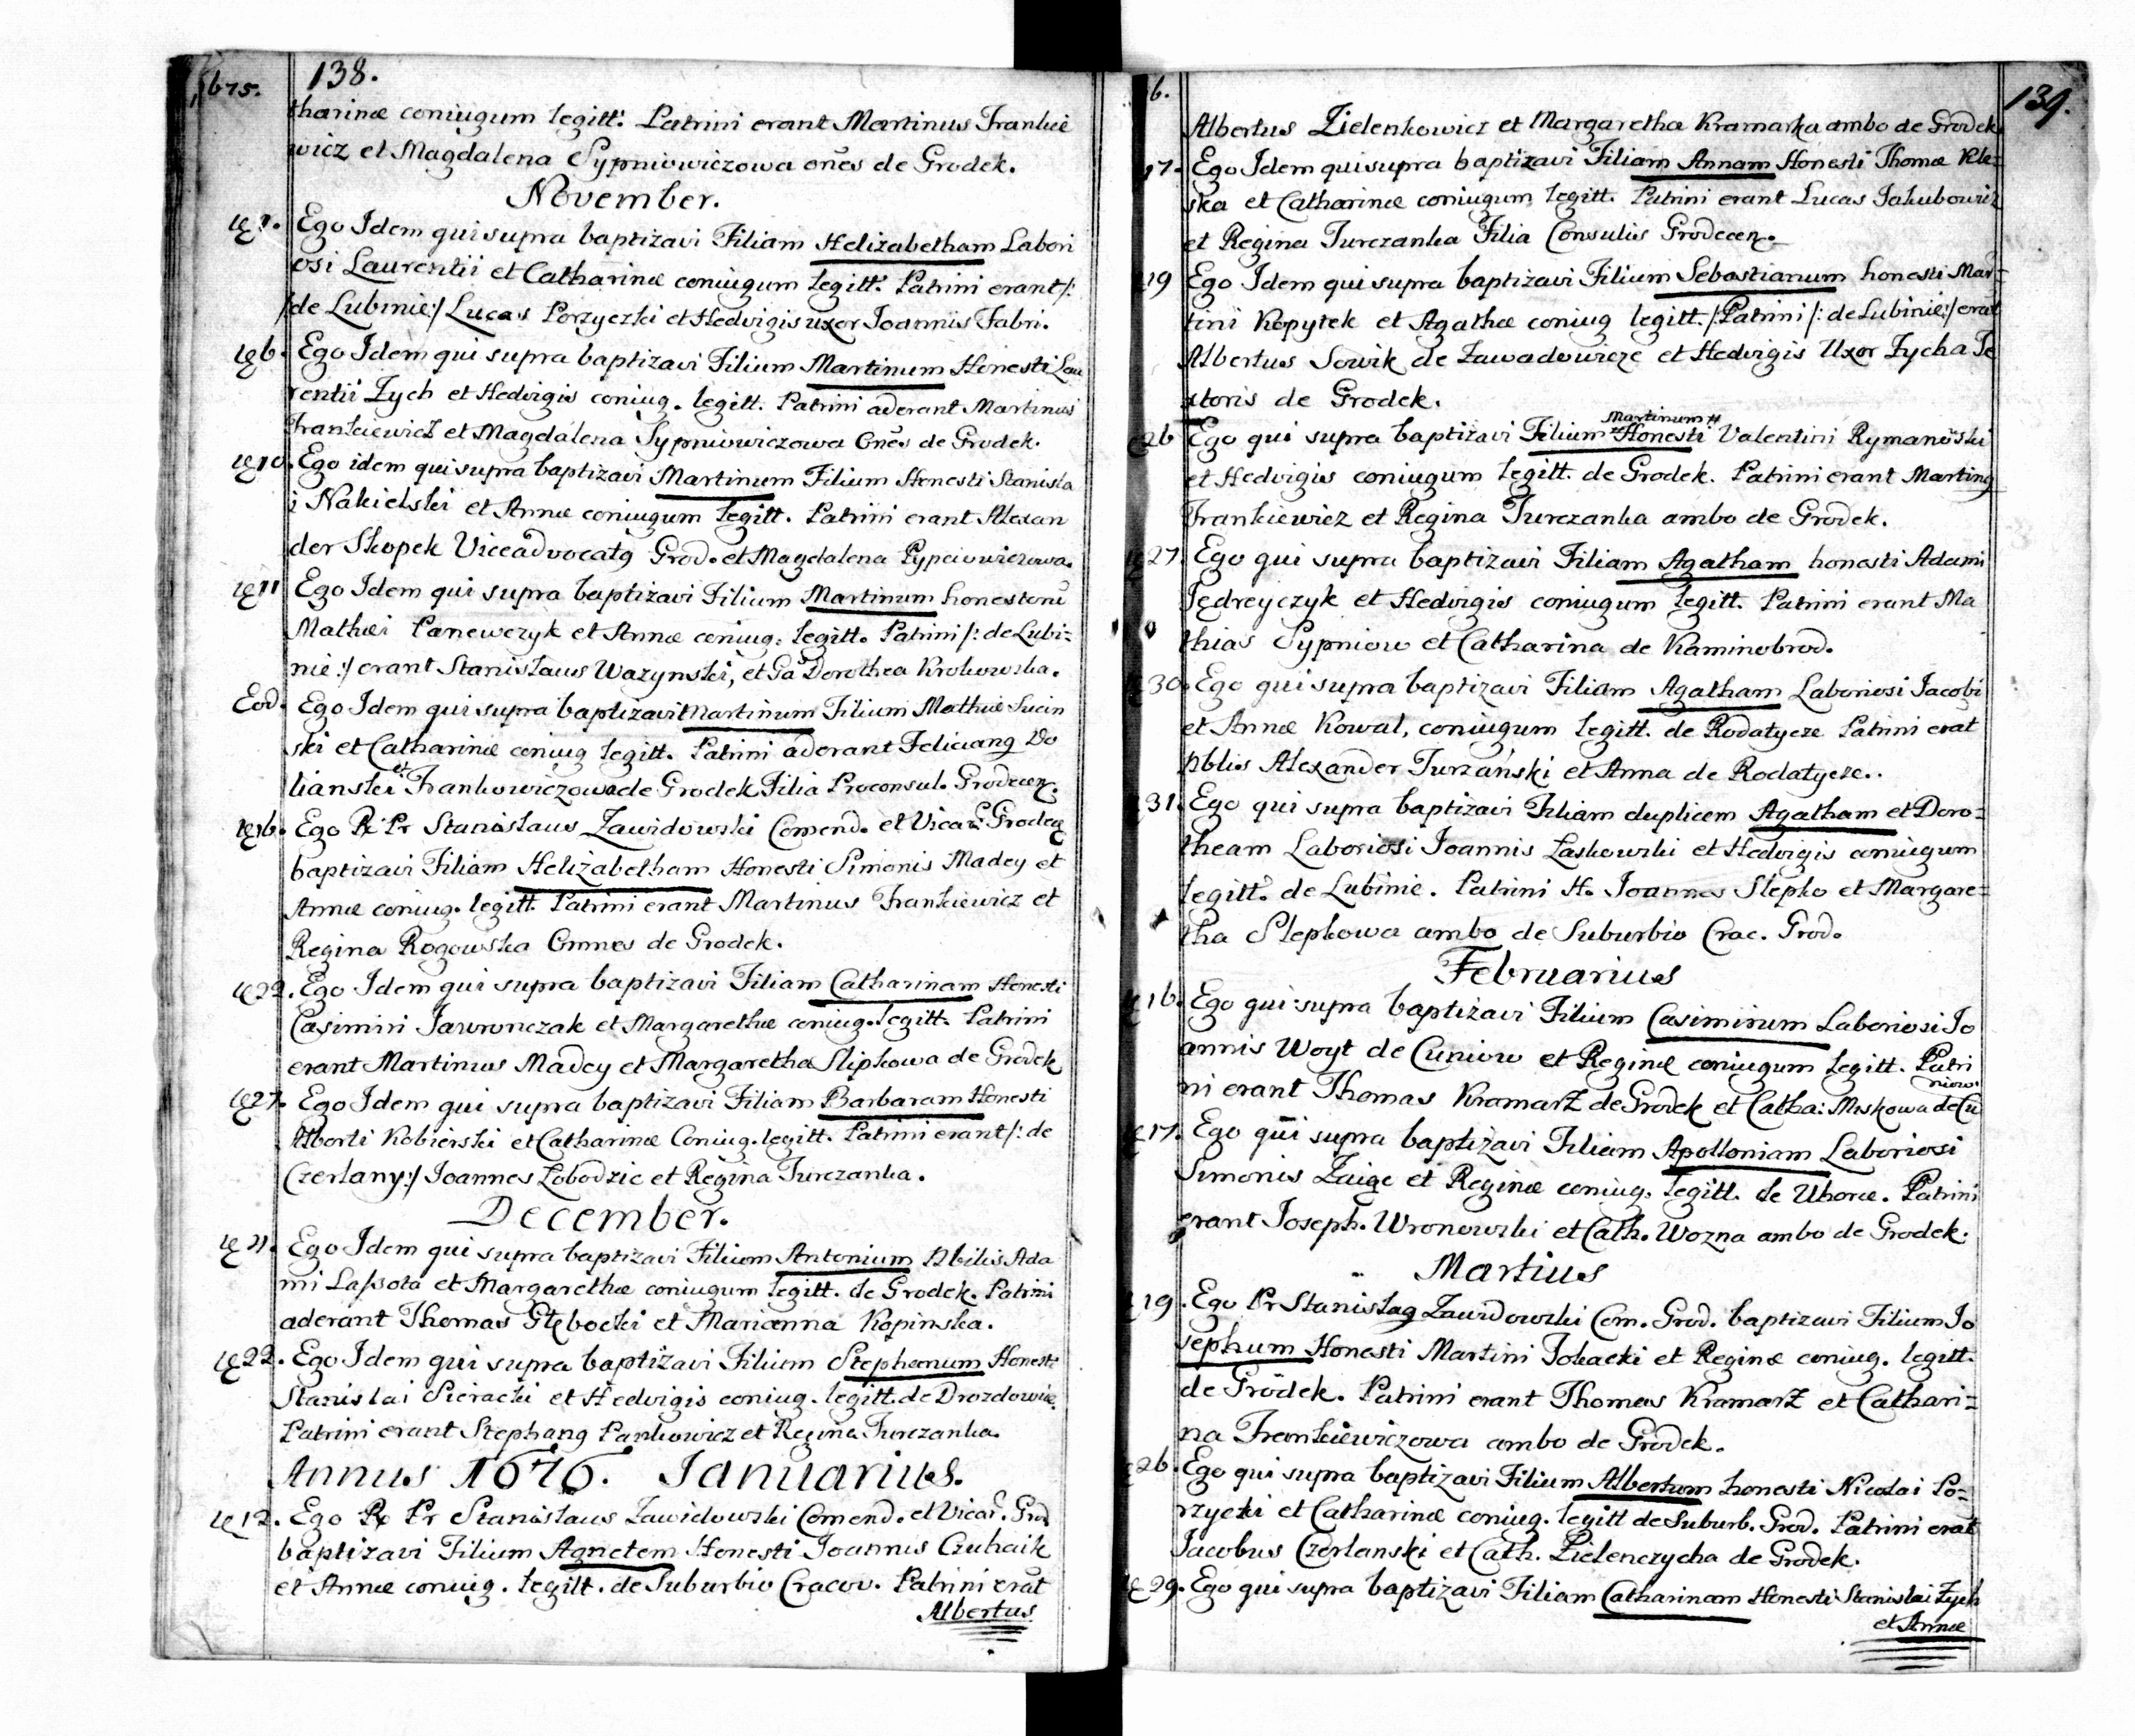 1675.
138.
tharinæ coniugum legitt. Patrini erant Martinus Frankie
wicz et Magdalena Sypniowiczowa oñes de Grodek.
November.
1. Ego Idem qui supra baptizavi Filiam Helizabetham Labori
osi Laurentii et Catharinæ coniugum legitt. Patrini erant/:
/de Lubinie:/ Lucas Porzyczki et Hedvigis uxor Joannis Fabri.
6. Ego Idem qui supra baptizavi Filium Martinum Honesti Lau
rentii Zych et Hedvigis coniug. legitt. Patrini aderant Martinus
Frankiewicz et Magdalena Sypniowiczowa Oñes de Grodek.
10. Ego idem qui supra baptizavi Martinum Filium Honesti Stanisla
i Nakielski et Annæ coniugum legitt. Patrini erant Alexan
der Skopek Viceadvocatg Grod. et Magdalena Pypciowiczowa.
11 Ego Idem qui supra baptizavi Filium Martinum honestorū
Mathæi Panewczyk et Annæ coniug: legitt. Patrini /: de Lubi=
nie:/ erant Stanislaus Wazynski, et Gsa Dorothea Krokowska.
Eod. Ego Idem qui supra baptizavi Martinum Filium Mathiæ Sucin
ski et Catharinæ coniug legitt. Patrini aderant Feliciang Do
lianski et Frankowiczowa de Grodek Filia Proconsul. Grodecen.
16. Ego Rx Pr Stanislaus Zawidowski Comend. et Vicar. Grodec
baptizavi Filiam Helizabetham Honesti Simonis Madey et
Annæ coniug. legitt. Patrini erant Martinus Frankiewicz et
Regina Rogowska Omnes de Grodek.
22. Ego Idem qui supra baptizavi Filiam Catharinam Honesti
Casimiri Jawronczak et Margarethæ coniug. legitt. Patrini
erant Martinus Madey et Margaretha Slipkowa de Grodek
27. Ego Idem qui supra baptizavi Filiam Barbaram Honesti
Alberti Kobierski et Catharinæ Coniug. legitt. Patrini erant/: de
Czerlany:/ Joannes Lobodzic et Regina Turczanka.
December.
21. Ego Idem qui supra baptizavi Filium Antonium Nbilis Ada
mi Lassota et Margarethæ coniugum legitt. de Grodek. Patrini
aderant Thomas Głębocki et Marianna Kopinska.
22. Ego Idem qui supra baptizavi Filium Stephanum Honesti
Stanislai Sieracki et Hedvigis coniug. legitt. de Drozdowie.
Patrini erant Stephang Pankowicz et Regina Turczanka.
Annus 1676. Januarius.
12. Ego Rx Pr Stanislaus Zawidowski Comend. et Vicar. Grod
baptizavi Filium Agnetem Honesti Joannis Czuhaik
et Annæ coniug. legitt. de Suburbio Cracov. Patrini erāt
Albertus
6.
139.
Albertus Zielenkowicz et Margaretha Kramarka ambo de Grodek
17. Ego Idem qui supra baptizavi Filiam Annam Honesti Thomæ Kle=
ska et Catharinæ coniugum legitt. Patrini erant Lucas Jakubowicz
et Regina Turczanka Filia Consulis Grodecen.
19 Ego Idem qui supra baptizavi Filium Sebastianum honesti Mar=
tini Kopytek et Agathæ coniug legitt. /Patrini /: de Lubinie:/ erāt
Albertus Sowik de Zawadowicze et Hedvigis Uxor Zycha Te
xtoris de Grodek.
26 Ego qui supra baptizavi Filium Martinum Honesti Valentini Rymanowski
et Hedvigis coniugum legitt. de Grodek. Patrini erant Marting
Frankiewicz et Regina Turczanka ambo de Grodek.
27. Ego qui supra baptizavi Filiam Agatham honesti Adami
Jędreyczyk et Hedvigis coniugum legitt. Patrini erant Ma
thias Sypniow et Catharina de Kaminobrod.
30. Ego qui supra baptizavi Filiam Agatham Laboriosi Jacobi
et Annæ Kowal, coniugum legitt. de Rodatycze Patrini erāt
Nblis Alexander Turzański et Anna de Rodatycze..
31. Ego qui supra baptizavi Filiam duplicem Agatham et Doro=
theam Laboriosi Joannis Laskowski et Hedvigis coniugum
legitt. de Lubinie. Patrini H. Joannes Slepko et Margare=
tha Slepkowa ambo de Suburbio Crac. Grod.
Februarius
16. Ego qui supra baptizavi Filium Casimirum Laboriosi Jo
annis Woyt de Cuniow et Reginæ coniugum legitt. Patri
ni erant Thomas Kramarz de Grodek et Catha: Mrskowa de Cu
niow.
17. Ego qui supra baptizavi Filiam Apolloniam Laboriosi
Simonis Zaige et Reginæ coniug. legitt. de Uhorce. Patrini
erant Joseph. Wronowski et Cath. Wozna ambo de Grodek.
Martius
19. Ego Pr Stanislag Zawidowski Com. Grod. baptizavi Filium Jo
sephum Honesti Martini Johacki et Reginæ coniug. legitt.
de Grodek. Patrini erant Thomas Kramarz et Cathari=
na Frankiewiczowa ambo de Grodek.
26. Ego qui supra baptizavi Filium Albertum honesti Nicolai Po=
rzycki et Catharinæ coniug. legitt de Suburb. Grod. Patrini erāt
Jacobus Czerlanski et Cath. Zielenczycha de Grodek.
29. Ego qui supra baptizavi Filiam Catharinam Honesti Stanislai Zych
et Annæ